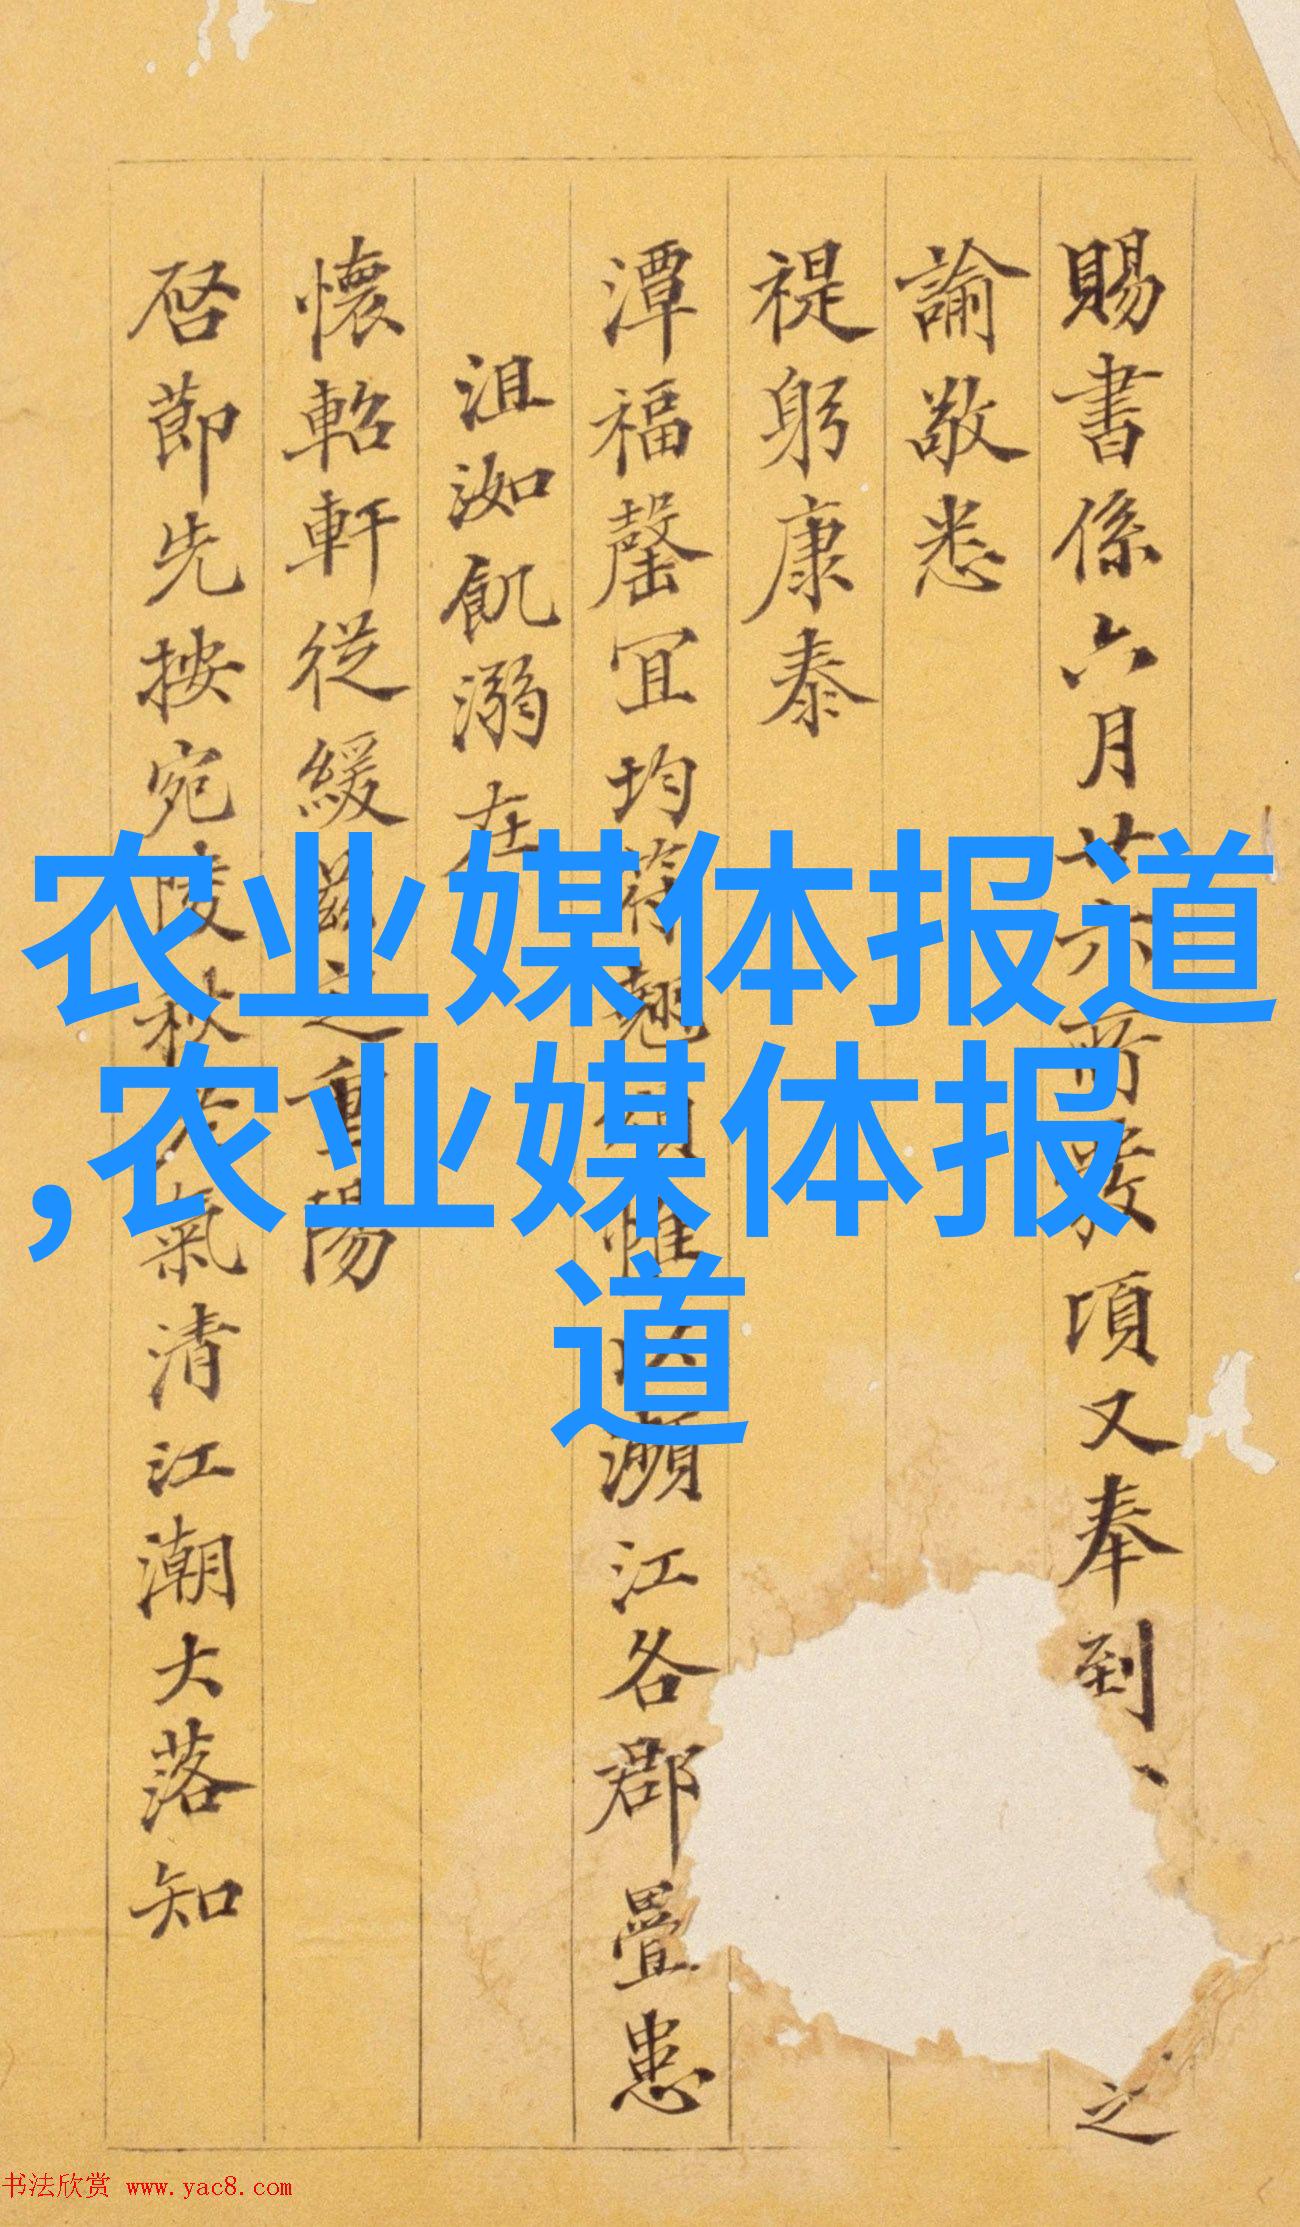 賜書係六月廿六所發頃又奉到
之
諭敬悉
禔躬康泰
潭福罄宜均符翹
濒江各郡疊患
沮洳飢溺在
懷軺軒從緩茲之重陽
啓節先按宛陵秋
氣清江潮大落知
农业媒体报道
,农业媒体报
道
书法欣赏 www.yac8.com